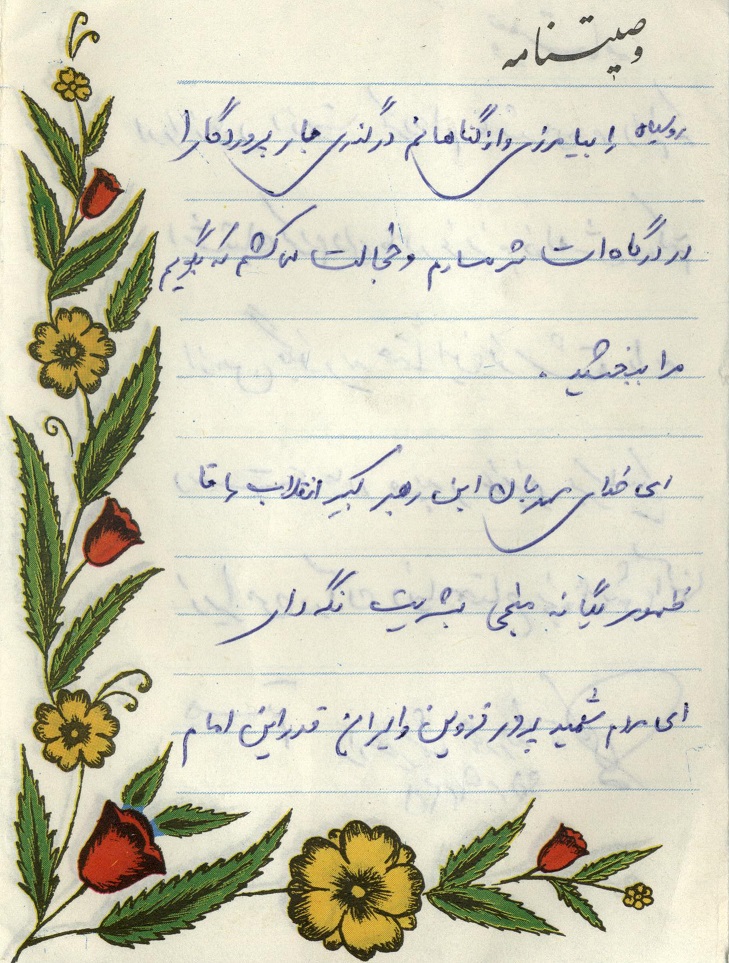 وصیتنامه
روسیاه را بیامرزی و از گناهانم درگذری بار پروردگارا
در درگاه ات شرمسارم و خجالت می کشم که بگویم
مرا ببخشید .
ای خدای مهربان این رهبر کبیر انقلاب را تا
ظهور یگانه منجی بشریت نگه دار
ای مردم شهید پرور قزوین و ایران قدر این امام